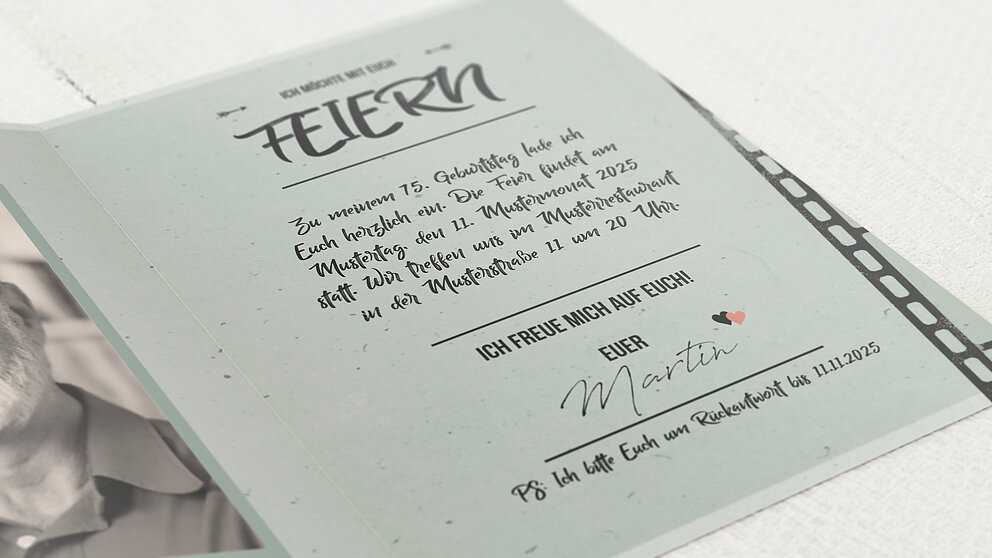 ICH MÖCHTE MIT EUCH
FEIERN
Zu meinem 75. Geburtstag lade ich
Euch herzlich ein. Die Feier findet am
Mustertag, den 11. Mustermonat 2025
statt. Wir treffen uns im Musterrestaurant
in der Musterstraße 11 um 20 Uhr.
ICH FREUE MICH AUF EUCH!
EUER
Martin
PS: Ich bitte Euch um Rückantwort bis 11.11.2025